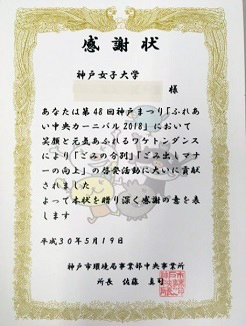 感謝状
神戸女子大学
様
あなたは第48回神戸まつり「ふれあ
い中央カーニバル2018」において
笑顔と元気あふれるワケトンダンス
により「ごみの分別」「ごみ出しマナ
ーの向上」の啓発活動に大いに貢献
されました
よって本状を贈り深く感謝の意を表
します
平成30年5月19日
神戸市環境局事業部中央事業所
所長 佐藤 真司